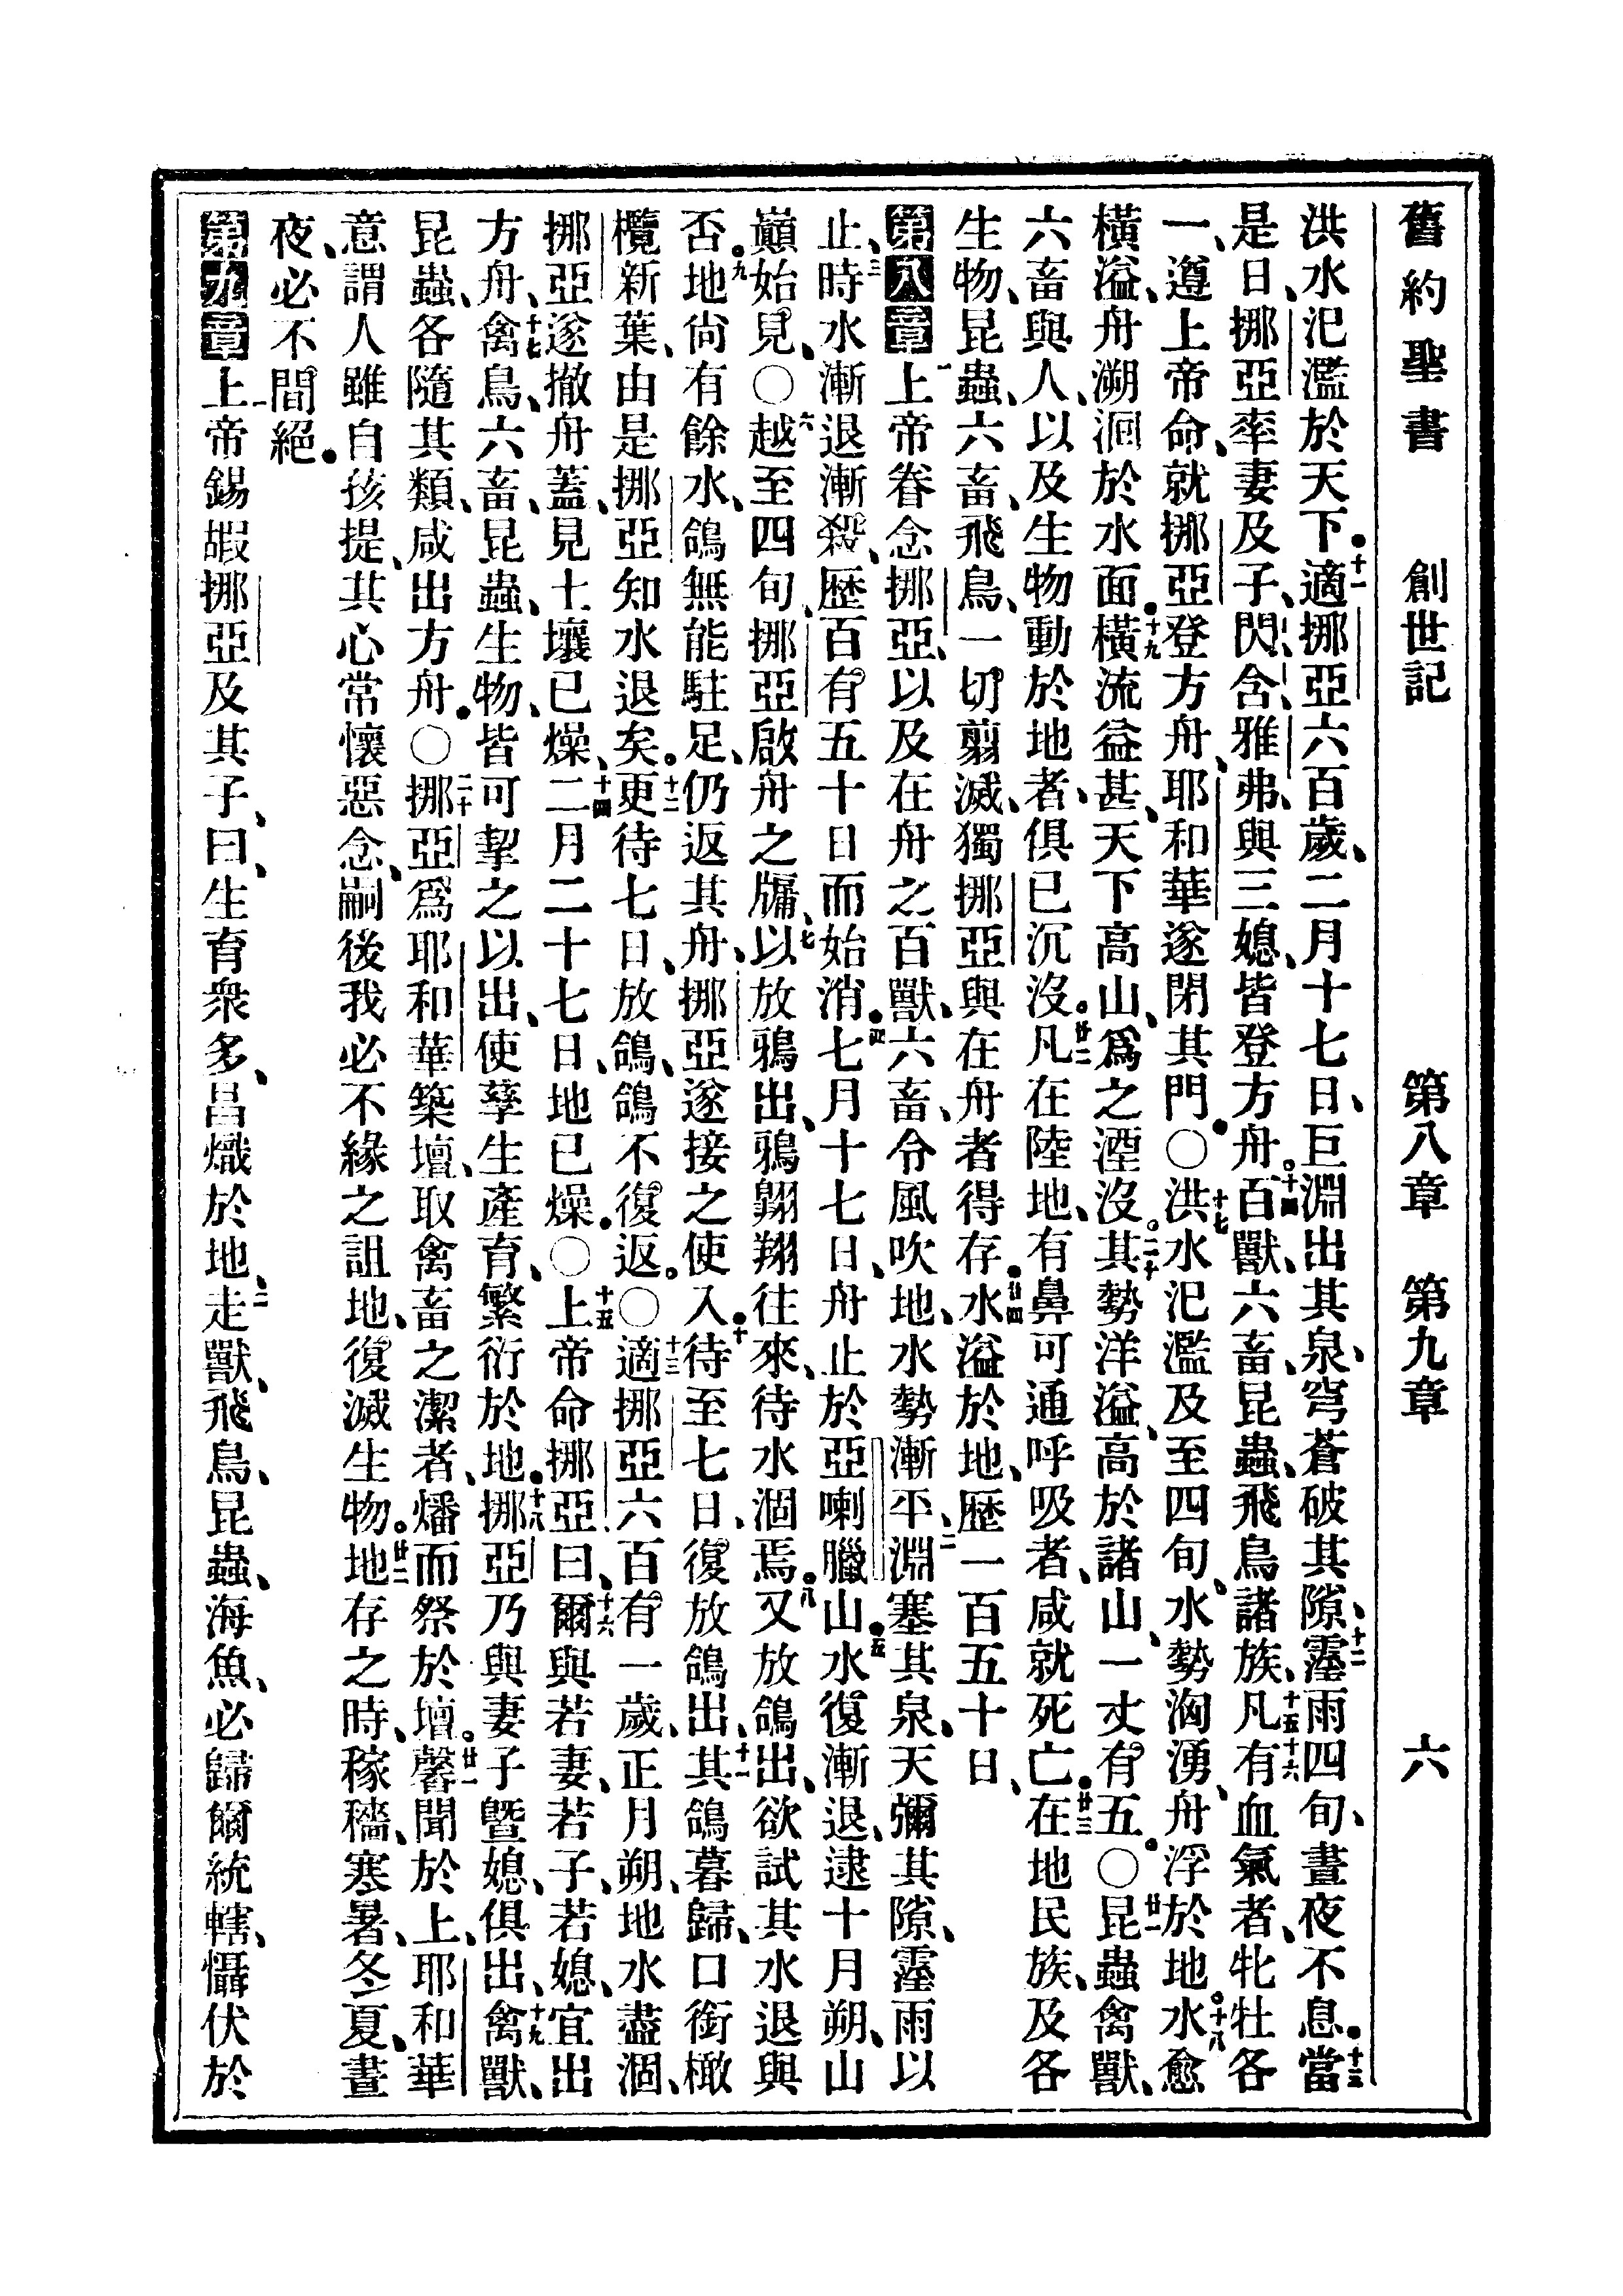 舊約聖書 創世記 第八章 第九章 六
洪水汜濫於天下●十一適挪亞六百歲、二月十七日、巨淵出其泉、穹蒼破其隙、十二霪雨四旬、晝夜不息●十三當
是日、挪亞率妻及子、閃、含、雅弗、與三媳、皆登方舟。十四百獸、六畜、昆蟲、飛鳥諸族、十五凡十六有血氣者、牝牡各
一、遵上帝命、就挪亞登方舟、耶和華遂閉其門●〇十七洪水汜濫及至四旬、水勢洶湧、舟浮於地。十八水愈
橫溢、舟溯洄於水面●十九橫流益甚、天下高山、爲之湮沒。二十其勢洋溢、高於諸山、一丈有五。〇廿一昆蟲禽獸、
六畜與人、以及生物動於地者、俱已沉沒。廿二凡在陸地、有鼻可通呼吸者、咸就死亡●廿三在地民族、及各
生物、昆蟲、六畜、飛鳥、一切翦滅、獨挪亞與在舟者得存●廿四水溢於地、歷一百五十日、
第八章 一上帝眷念挪亞、以及在舟之百獸、六畜、令風吹地、水勢漸平、二淵塞其泉、天彌其隙、霪雨以
止、三時水漸退漸殺、歷百有五十日而始消●四七月十七日、舟止於亞喇臘山●五水復漸退、逮十月朔、山
巔始見、〇六越至四旬、挪亞啟舟之牖、七以放鴉出、鴉翺翔往來、待水涸焉●八又放鴿出、欲試其水退與
否。九地尙有餘水、鴿無能駐足、仍返其舟、挪亞遂接之使入●十待至七日、復放鴿出、十一其鴿暮歸、口銜橄
欖新葉、由是挪亞知水退矣。十二更待七日、放鴿、鴿不復返。〇十三適挪亞六百有一歲、正月朔、地水盡涸、
挪亞遂撤舟蓋、見土壤已燥、十四二月二十七日、地已燥●〇十五上帝命挪亞曰、十六爾與若妻、若子、若媳、宜出
方舟、十七禽鳥、六畜、昆蟲、生物、皆可挈之以出、使孳生產育、繁衍於地●十八挪亞乃與妻子曁媳、俱出、十九禽獸、
昆蟲、各隨其類、咸出方舟●〇二十挪亞爲耶和華築壇、取禽畜之潔者、燔而祭於壇。廿一馨聞於上、耶和華
意謂人雖自孩提、其心常懷惡念、嗣後我必不緣之詛地、復滅生物。廿二地存之時、稼穡、寒暑、冬夏、晝
夜、必不間絕●
第九章 一上帝錫嘏挪亞及其子、曰、生育衆多、昌熾於地、二走獸、飛鳥、昆蟲、海魚、必歸爾統轄、懾伏於